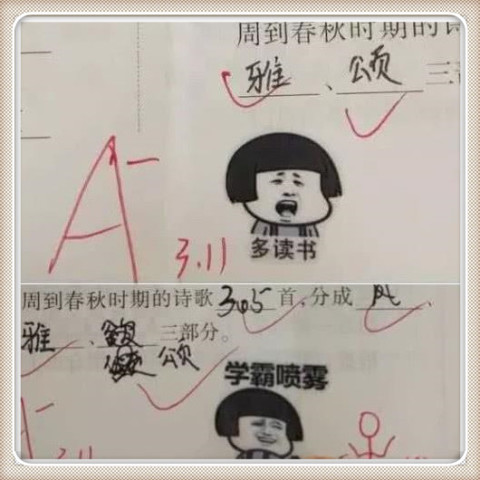 周到春秋时期的诗
雅、颂三部
A-
3.11
多读书
周到春秋时期的诗歌305首，分成风、
雅、颂三部分。
学霸喷雾